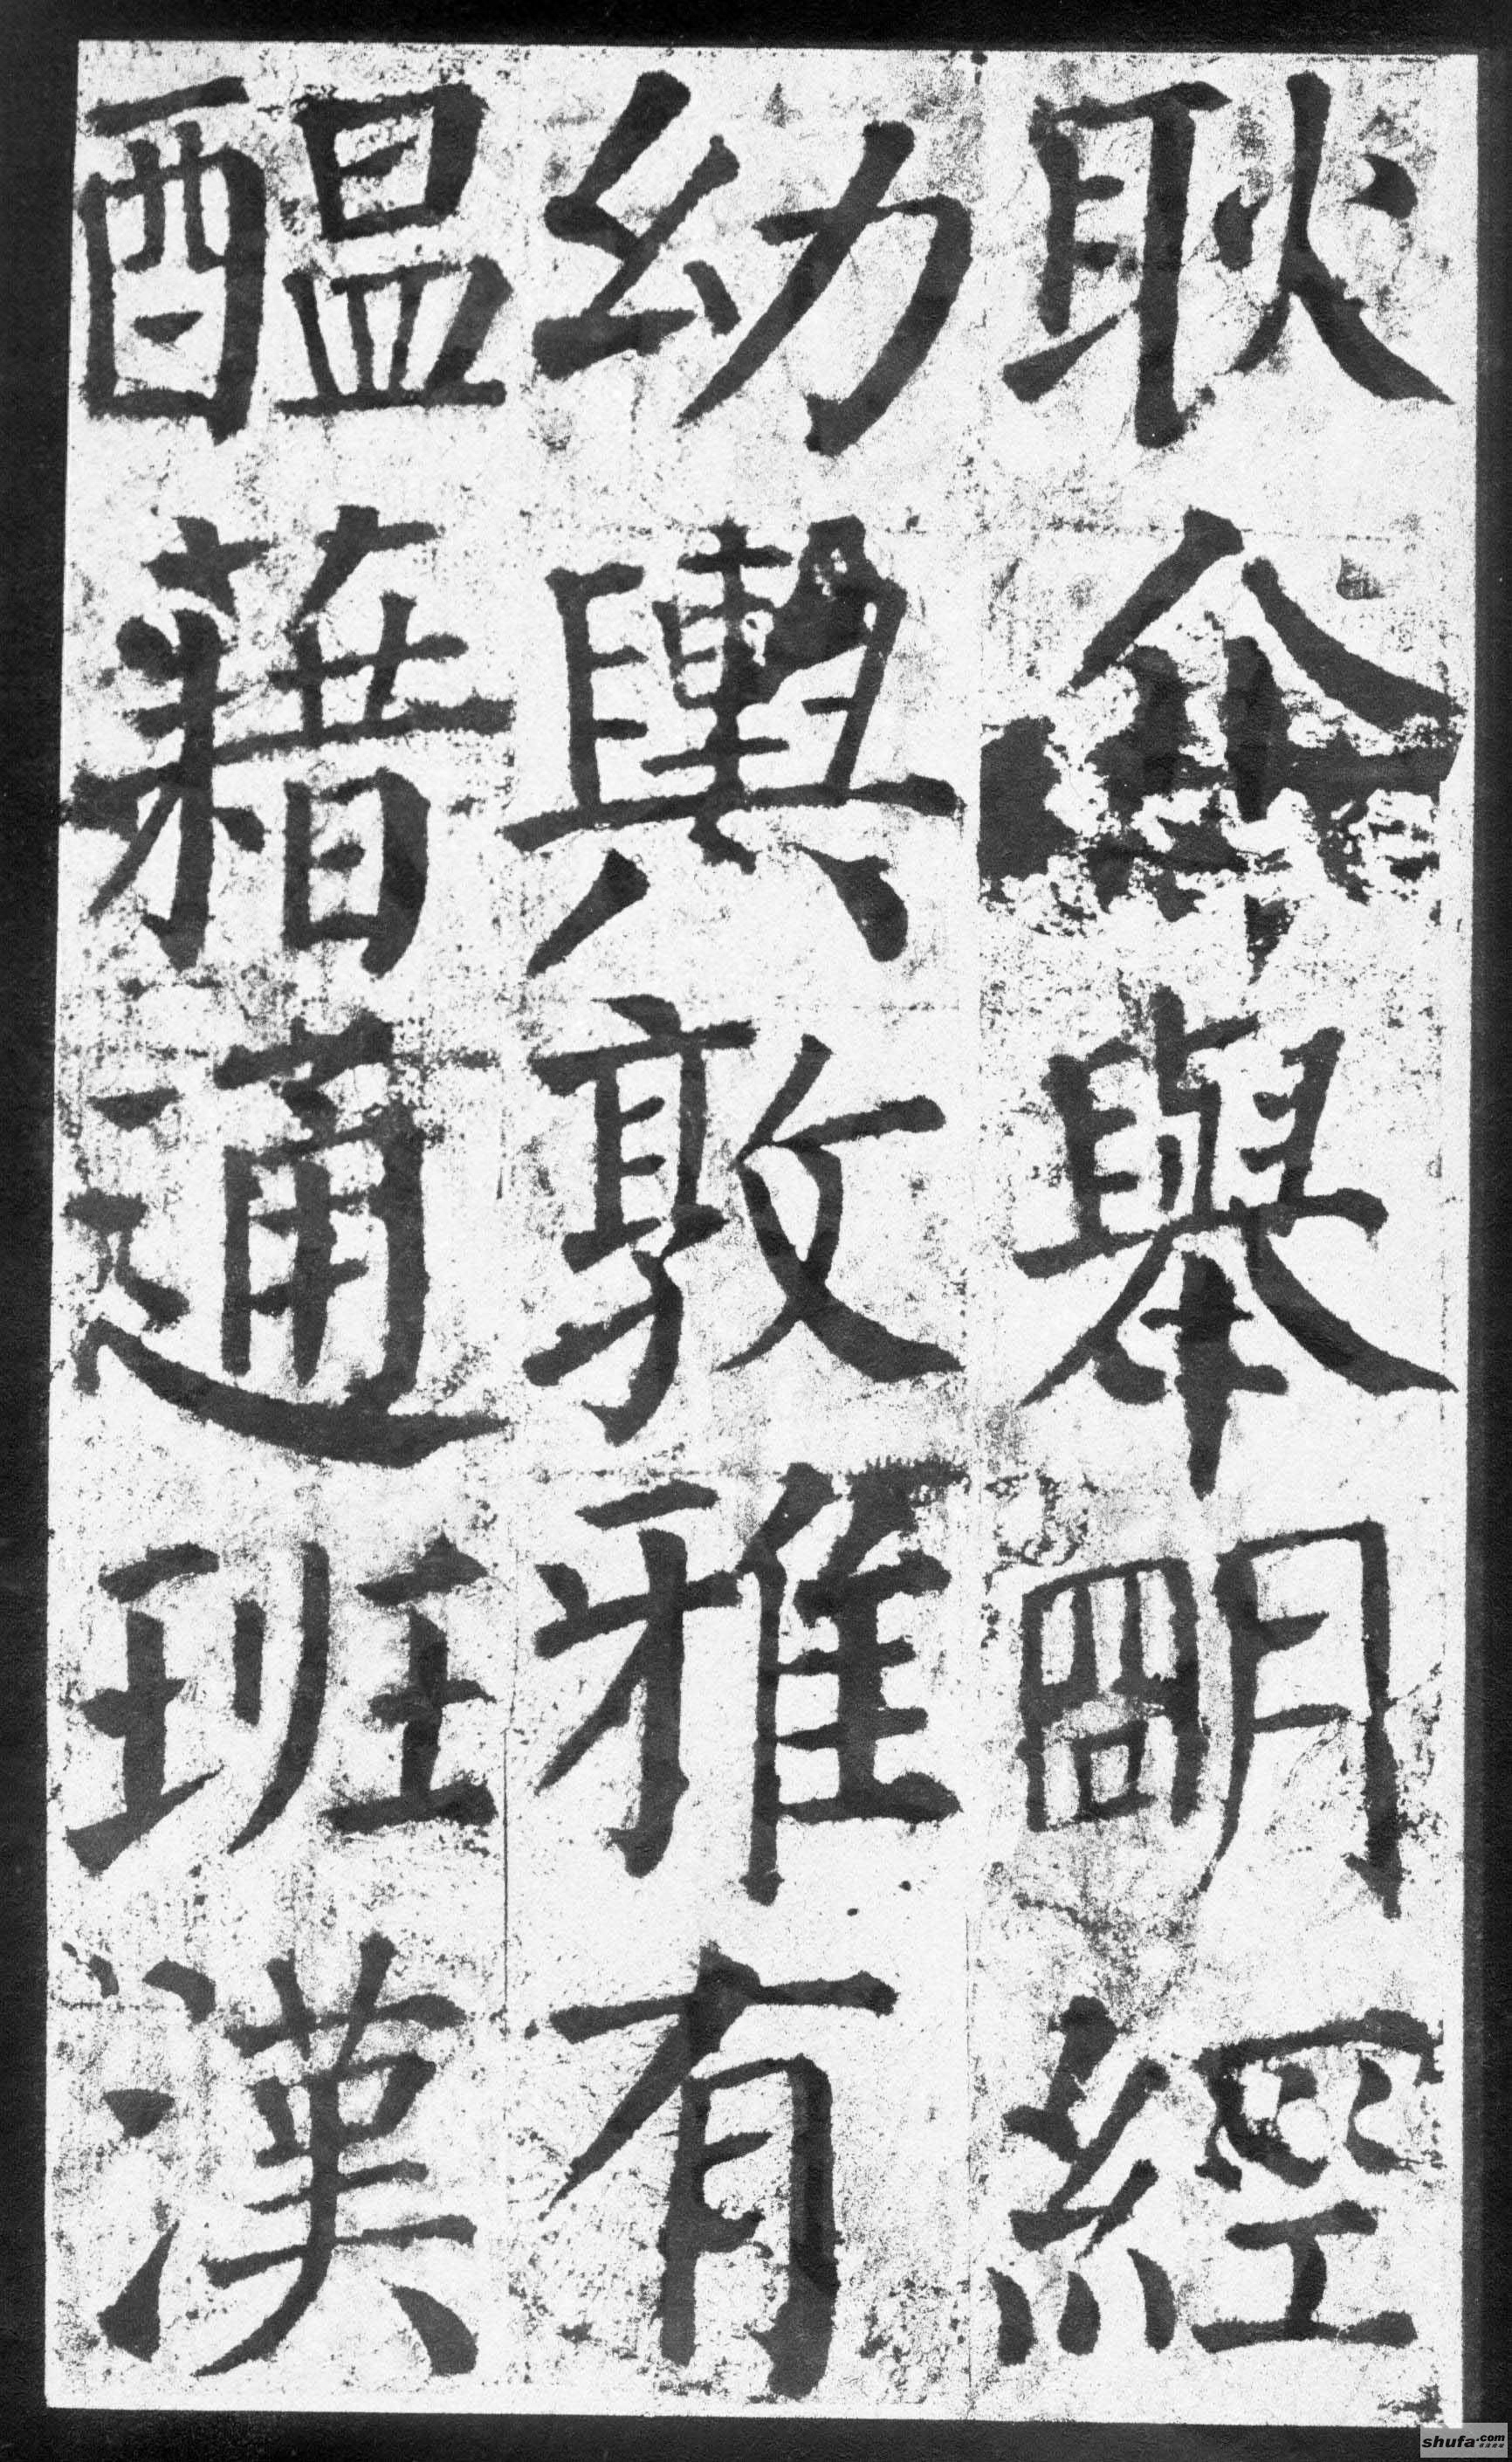 耿介舉明經
幼輿敦雅有
醖藉通班漢
shufa.com